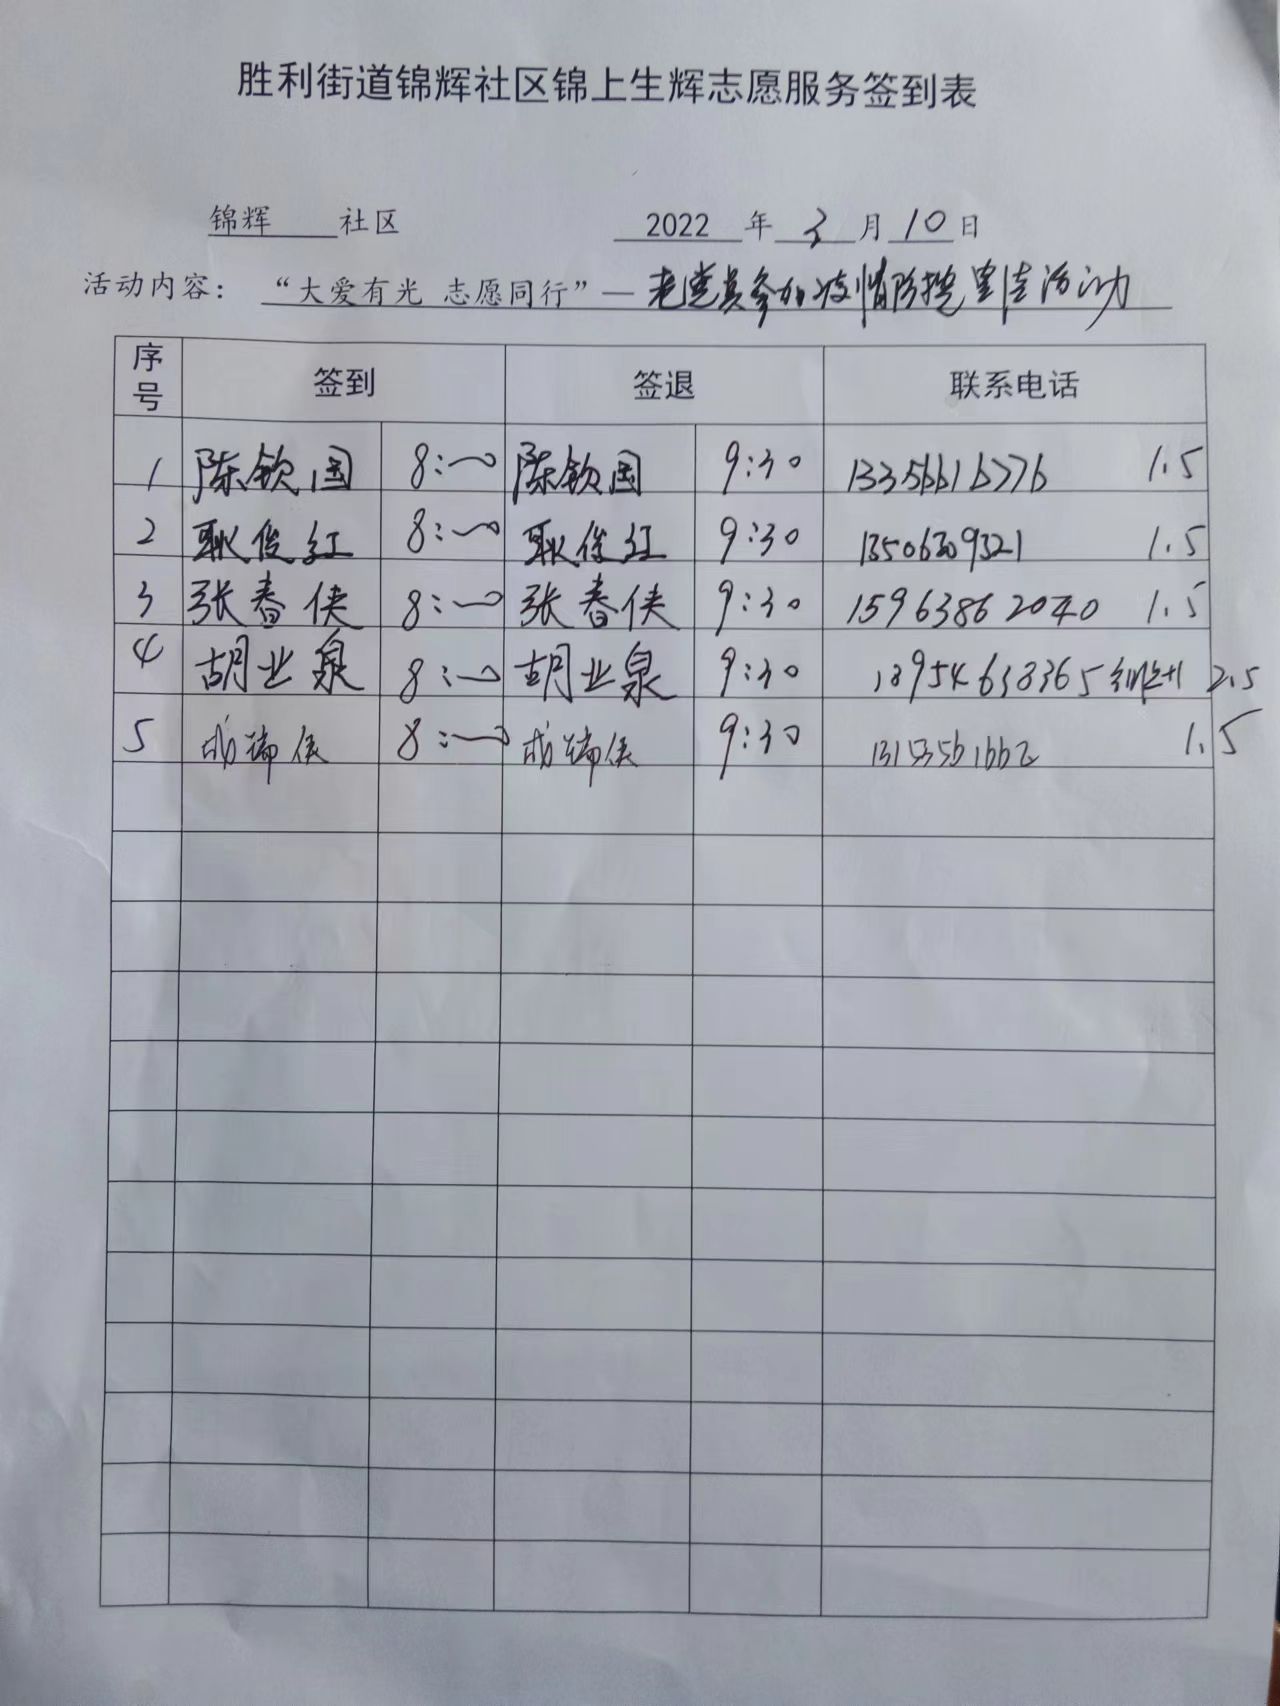 胜利街道锦辉社区锦上生辉志愿服务签到表
锦辉 社区 2022 年 3 月 10 日
活动内容：“大爱有光 志愿同行”—老党员参加疫情防控宣传活动
序号 签到 签退 联系电话
1 陈钦国 8:00 陈钦国 9:30 13356616776 1.5
2 耿俊红 8:00 耿俊红 9:30 13506309321 1.5
3 张春侠 8:00 张春侠 9:30 15963862040 1.5
4 胡业泉 8:00 胡业泉 9:30 18954638365 2.5
5 瑞侠 8:00 瑞侠 9:30 13153561662 1.5